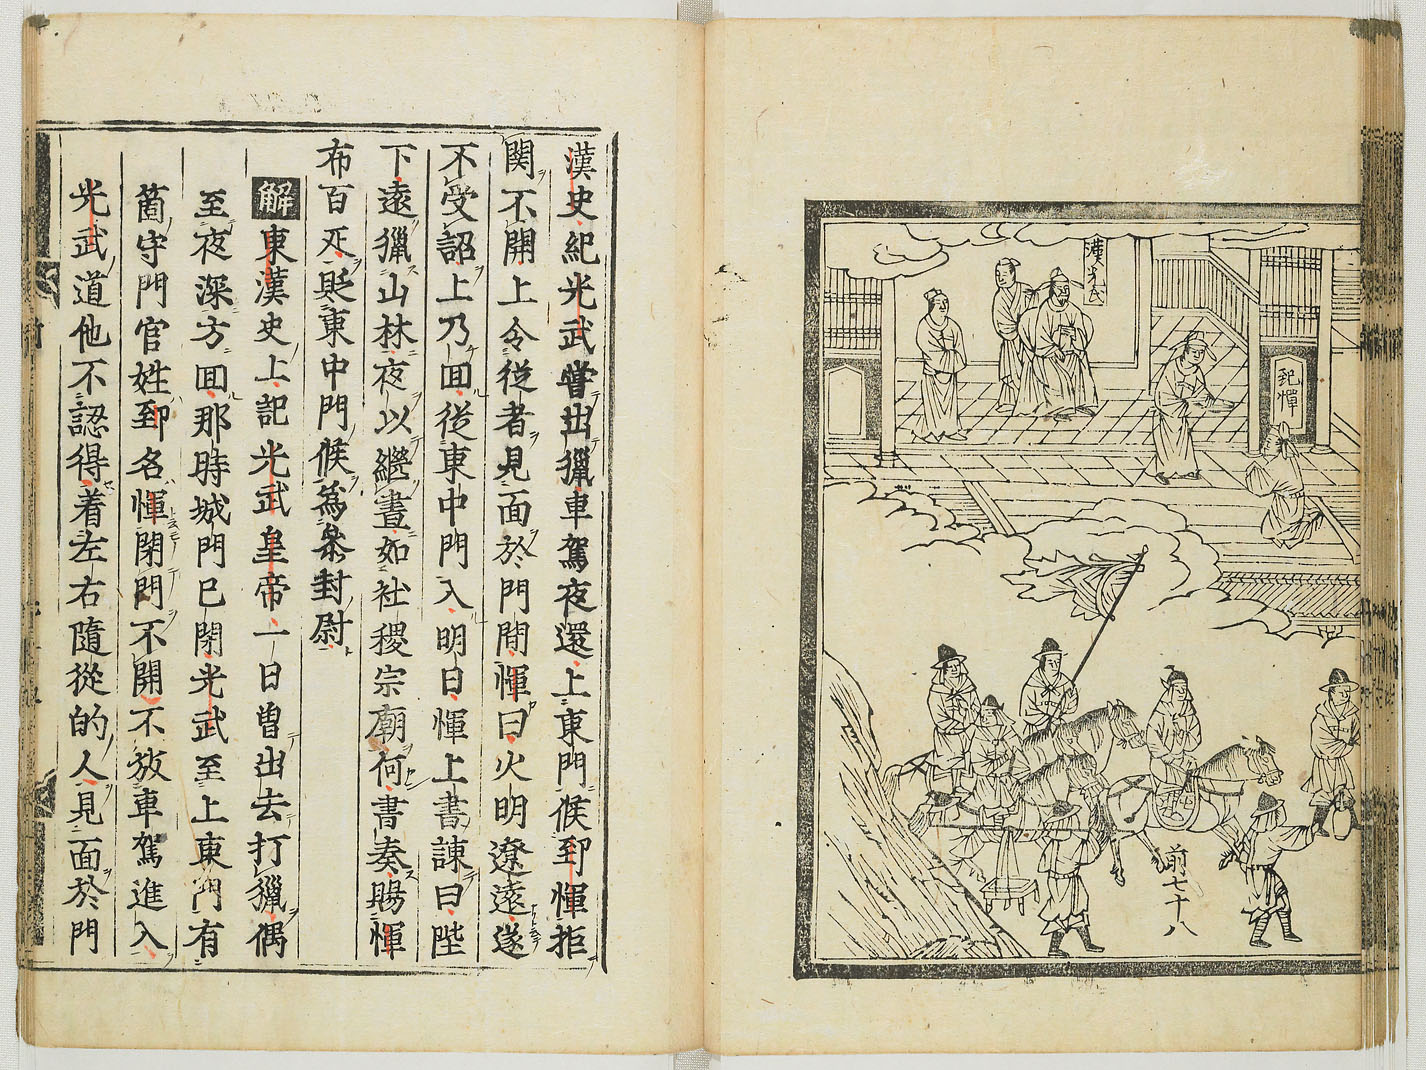 漢光武
郅惲
前七十八
漢史紀光武嘗出獵車駕夜還上東門候郅惲拒
関不開上令從者見面於門間惲曰火明遼遠遂
不受詔上乃囬從東中門入明日惲上書諫曰陛
下遠獵山林夜以繼晝如社稷宗廟何書奏賜惲
布百疋貶東中門候為叅封尉
解東漢史上記光武皇帝一日曽出去打獵偶
至夜深方囬那時城門已閉光武至上東門有
箇守門官姓郅名惲閉門不開不放車駕進入
光武道他不認得着左右隨從的人見面於門